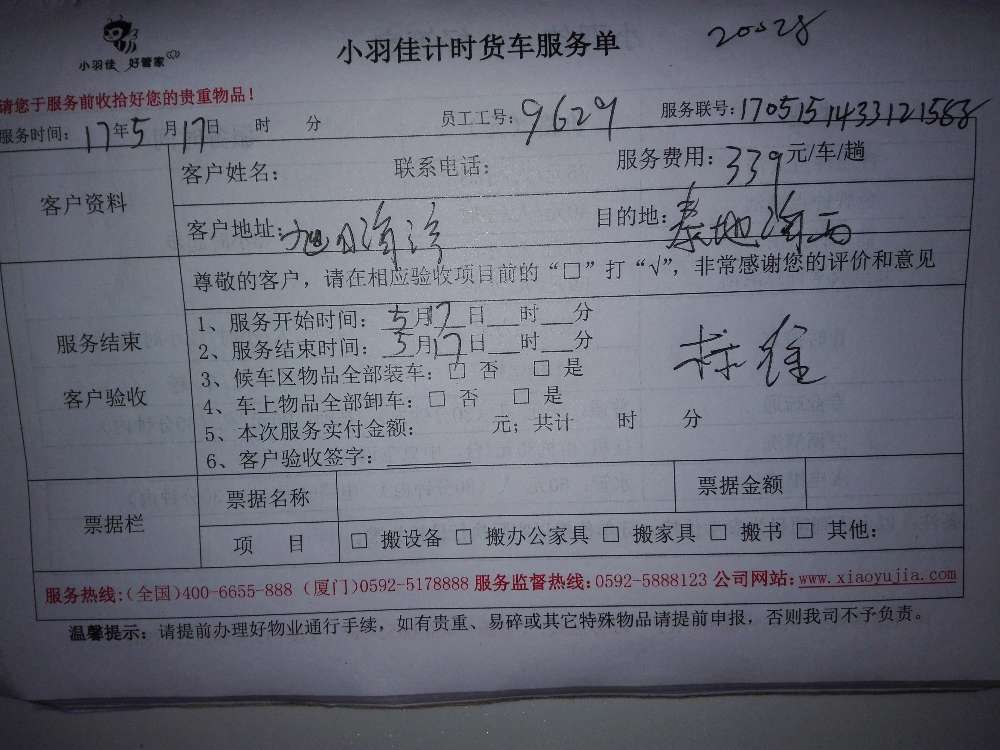 小羽佳 好管家
小羽佳计时货车服务单 20028
请您于服务前收拾好您的贵重物品！
服务时间：17年5月17日 时 分 员工工号：9629 服务联号：1705151433121588
客户资料
客户姓名： 联系电话： 服务费用：339元/车/趟
客户地址：旭日海湾 目的地：泰地海西
服务结束
客户验收
尊敬的客户，请在相应验收项目前的“□”打“√”，非常感谢您的评价和意见
1、服务开始时间：5月17日___时___分
2、服务结束时间：5月17日___时___分
3、候车区物品全部装车：□ 否 □ 是
4、车上物品全部卸车：□ 否 □ 是
5、本次服务实付金额： 元；共计 时 分
6、客户验收签字：________
票据栏
票据名称 票据金额
项 目 □ 搬设备 □ 搬办公家具 □ 搬家具 □ 搬书 □ 其他：
服务热线:(全国)400-6655-888 (厦门)0592-5178888 服务监督热线:0592-5888123 公司网站:www.xiaoyujia.com
温馨提示：请提前办理好物业通行手续，如有贵重、易碎或其它特殊物品请提前申报，否则我司不予负责。